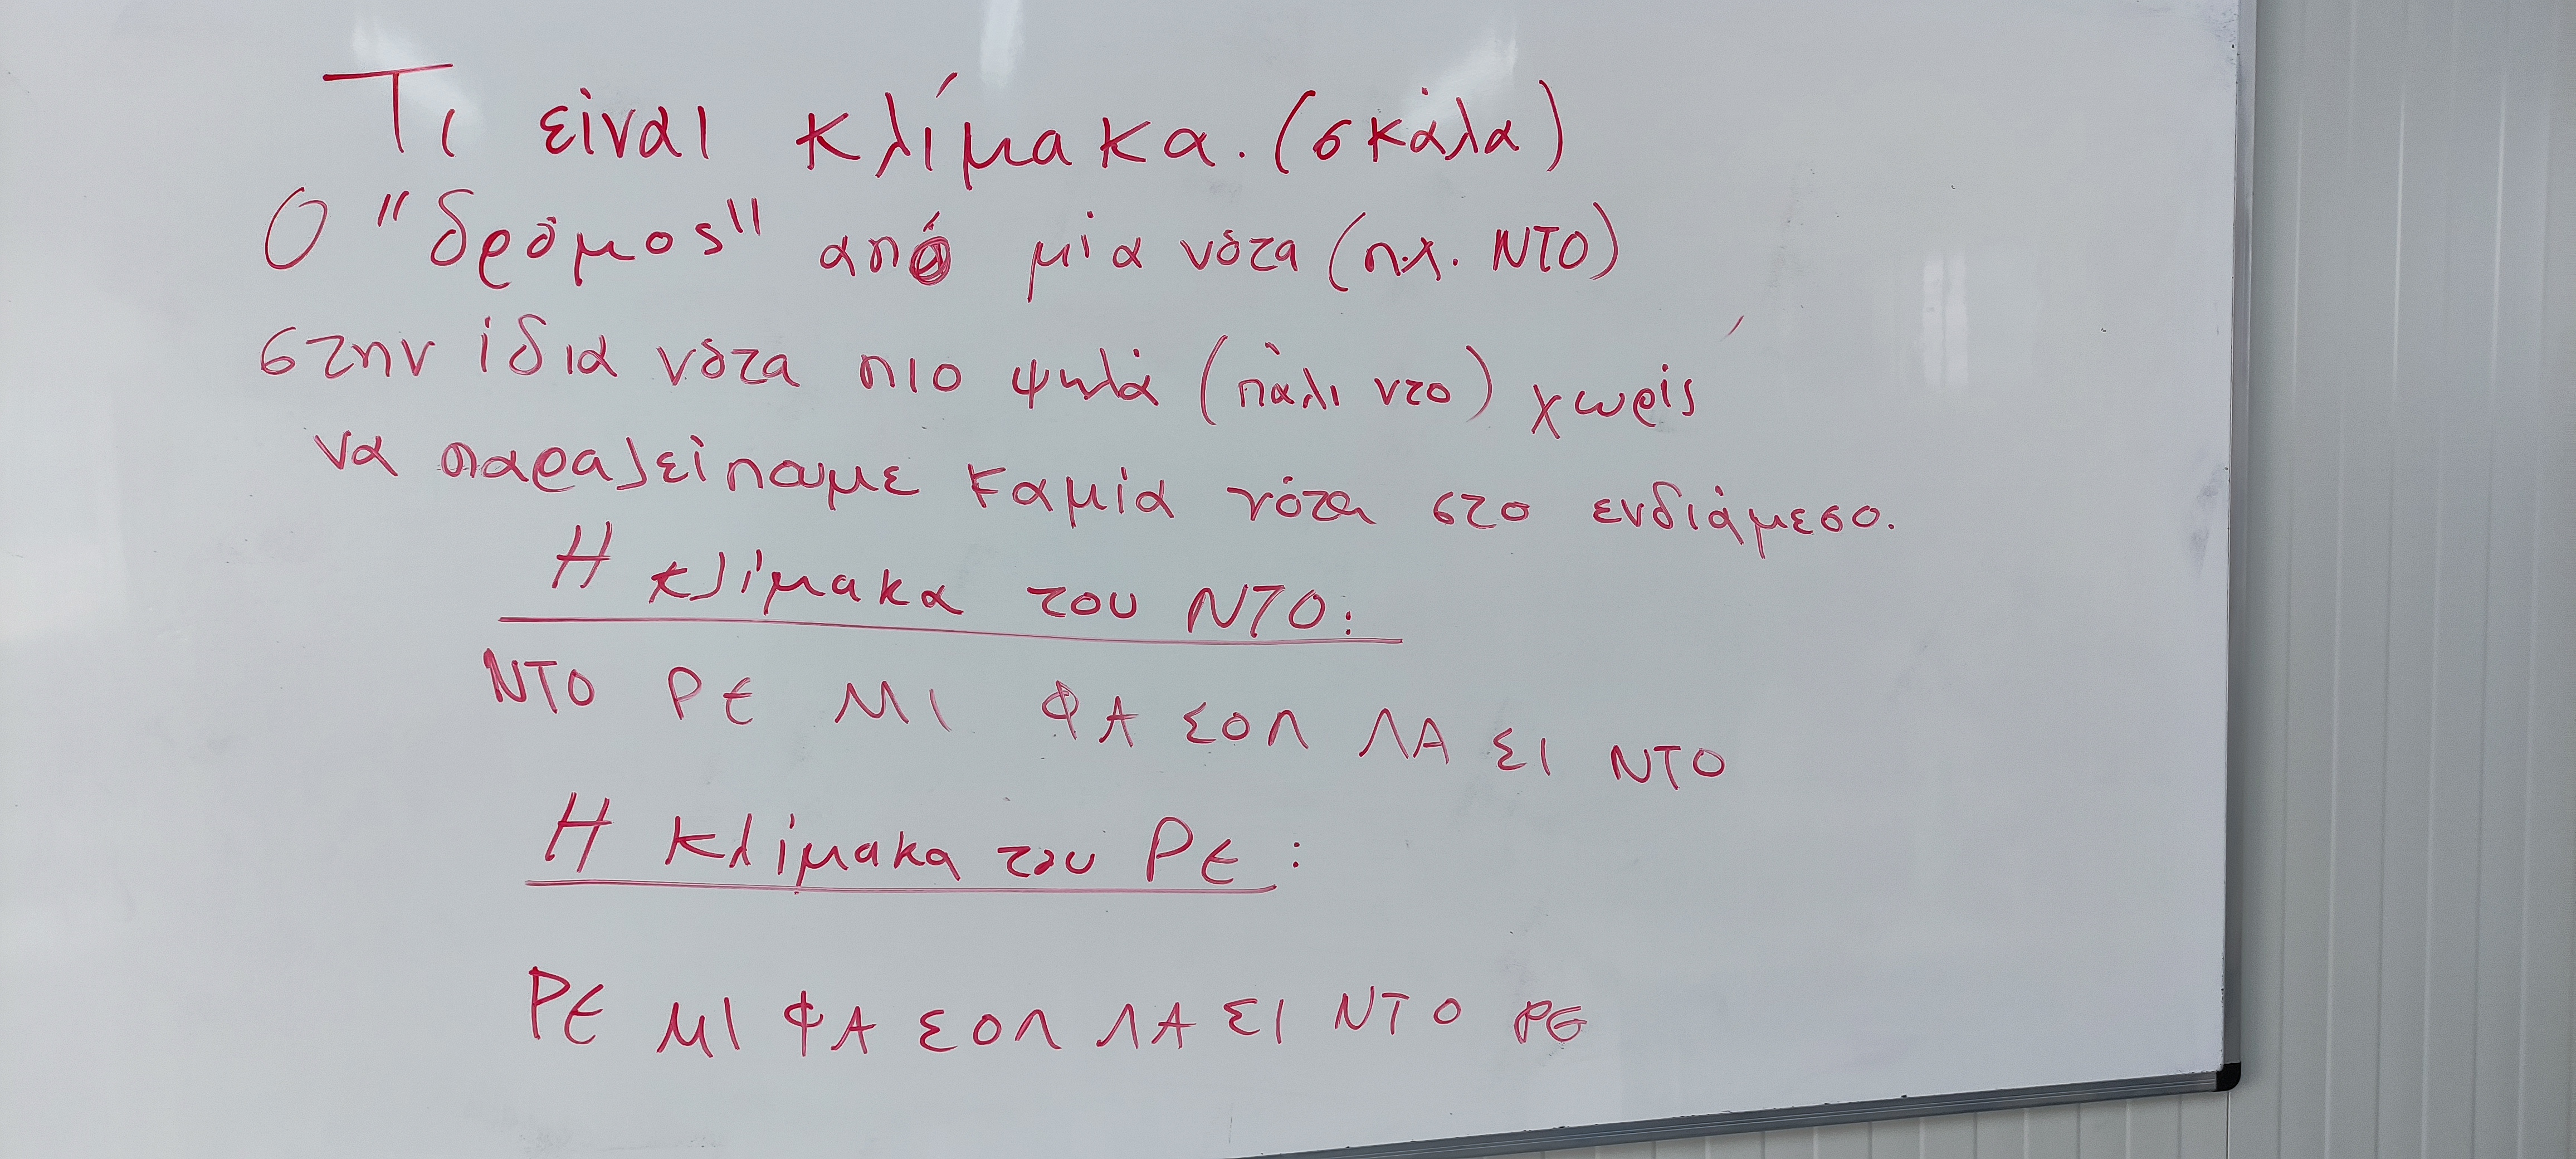 Τι είναι κλίμακα. (σκάλα)
Ο "δρόμος" από μία νότα (π.χ. ΝΤΟ)
στην ίδια νότα πιο ψηλά (πάλι ντο) χωρίς
να παραλείπουμε καμία νότα στο ενδιάμεσο.
Η κλίμακα του ΝΤΟ:
ΝΤΟ ΡΕ ΜΙ ΦΑ ΣΟΛ ΛΑ ΣΙ ΝΤΟ
Η κλίμακα του ΡΕ:
ΡΕ ΜΙ ΦΑ ΣΟΛ ΛΑ ΣΙ ΝΤΟ ΡΕ